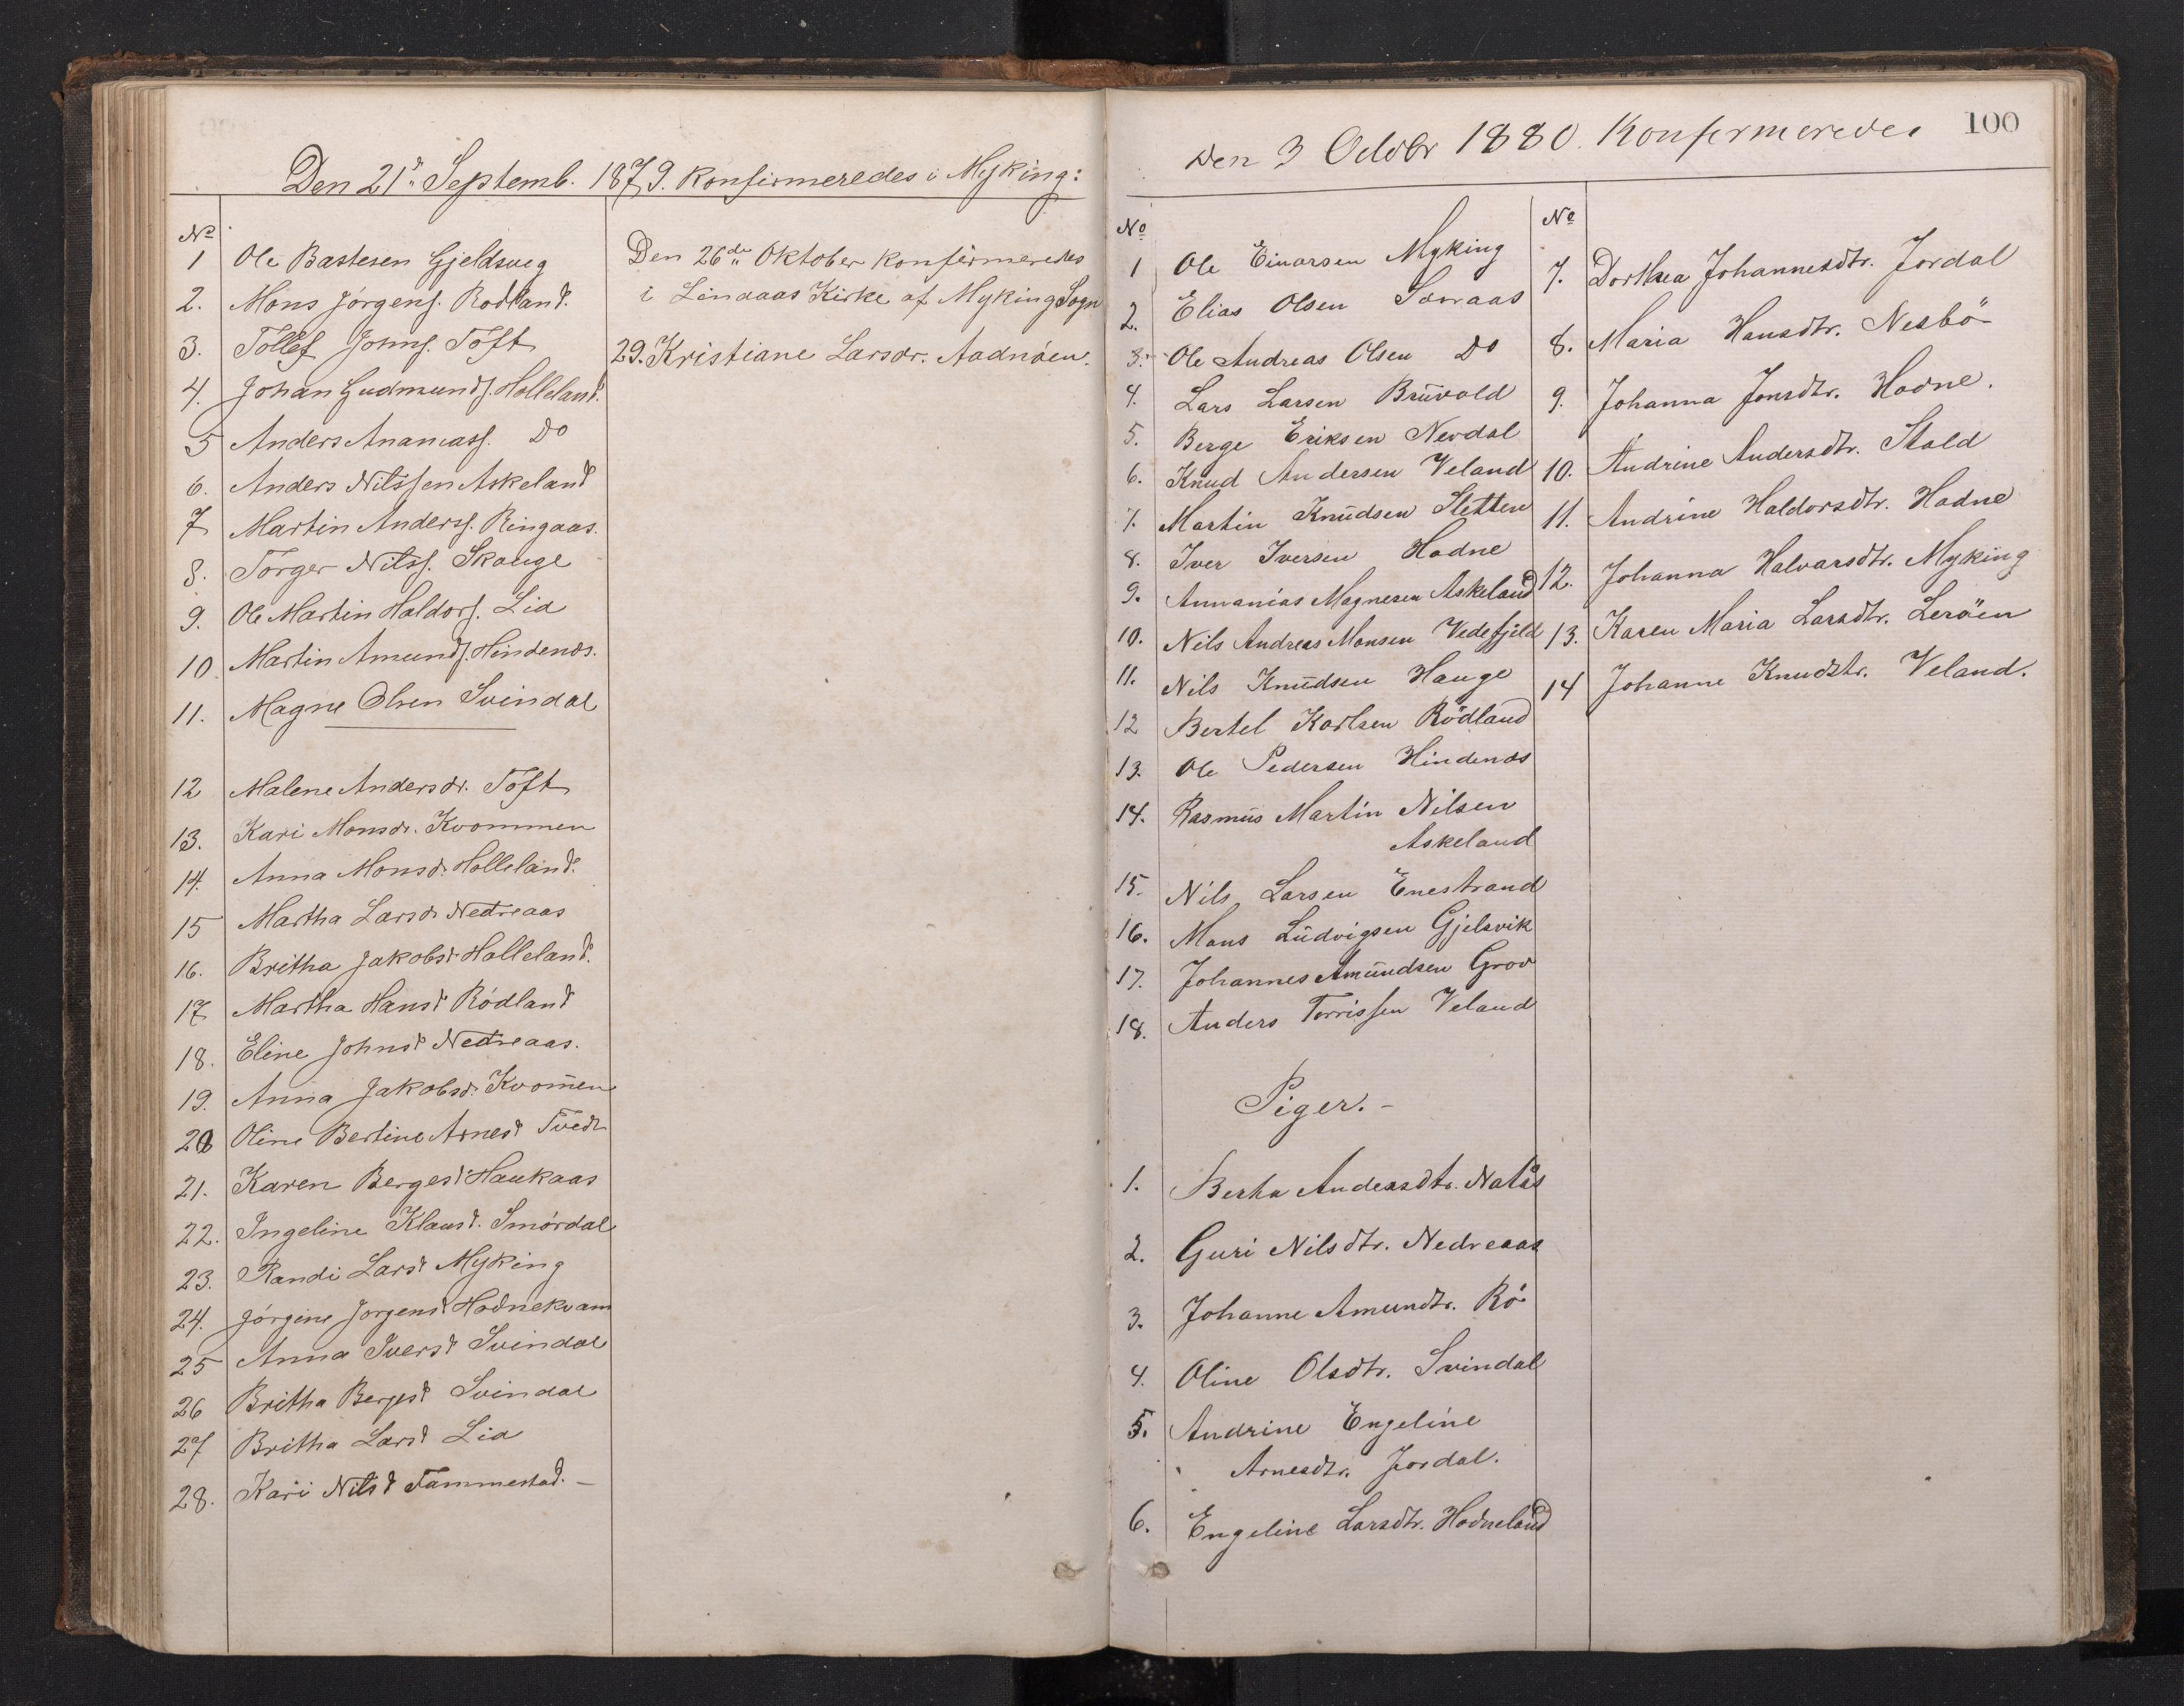 Den 21de Septemb. 1879. Konfirmeredes i Myking:
No
1 Ole Bastesen Gjeldsveg
2. Mons Jørgens. Rødland.
3. Tollef Johns. Toft
4. Johan Gudmunds. Holleland.
5 Anders Ananiass. Do
6. Anders Nilssen Askeland
7 Martin Anderss. Ringaas.
8. Torger Nilss. Skauge
9. Ole Martin Haldors. Lid
10. Martin Amunds. Hindenæs.
11. Magne Olsen Svindal
12 Malene Andersdr. Toft
13. Kari Monsdr. Kvommen
14. Anna Monsd. Holleland.
15 Martha Larsdr Nedreaas
16. Britha Jakobsd Holleland.
17 Martha Hansd Rødland
18. Eline Johnsd Nedreaas.
19. Anna Jakobsd. Kvom̄en
20 Oline Bertine Arnesd Tvedt
21. Karen Bergesd Haukaas
22. Ingeline Klausd. Smørdal
23. Randi Larsd Myking
24. Jørgine Jørgensd. Hodnekvam
25 Anna Iversd Svindal
26 Britha Bergesd Svindal
27 Britha Larsd Lid
28. Kari Nilsd Fammestad. –
Den 26de Oktober konfirmeredes
i Lindaas Kirke af Myking Sogn
29. Kristiane Larsdr. Aadnøen.
Den 3 Octobr 1880. Konfirmeredes
100
No
1 Ole Einarsen Myking
2. Elias Olsen Soraas
3. Ole Andreas Olsen Do
4. Lars Larsen Bruvold
5. Berge Eriksen Nevdal
6. Knud Andersen Veland
7. Martin Knudsen Sletten
8. Iver Iversen Hodne
9. Annanias Magnesen Askeland
10. Nils Andreas Monsen Vedefjeld
11. Nils Knudsen Hauge
12 Bertel Karlsen Rødland
13. Ole Pedersen Hindenæs
14. Rasmus Martin Nilsen
Askeland
15. Nils Larsen Enestrand
16. Mons Ludvigsen Gjelsvik
17. Johannes Amundsen Grov
18. Anders Torrissen Veland
Piger. –
1. Berha Andersdtr. Natås
2. Guri Nilsdtr. Nedreaas
3. Johanne Amundtr. Rø
4. Oline Olsdtr. Svindal
5. Andrine Engeline
Arnesdtr. Jordal.
6. Engeline Larsdtr. Hodneland
No
7. Dorthea Johannesdtr. Jordal
8. Maria Hansdtr. Nesbö
9. Johanna Jonsdtr. Hodne.
10. Andrine Andersdtr. Stald
11. Andrine Haldorsdtr. Hodne
12. Johanna Halvarsdtr. Myking
13. Karen Maria Larsdtr. Leröen
14 Johanne Knudstr. Veland.